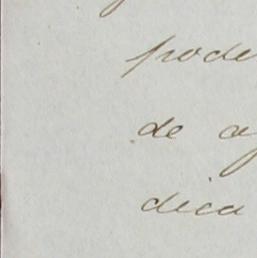 pode
de
dica